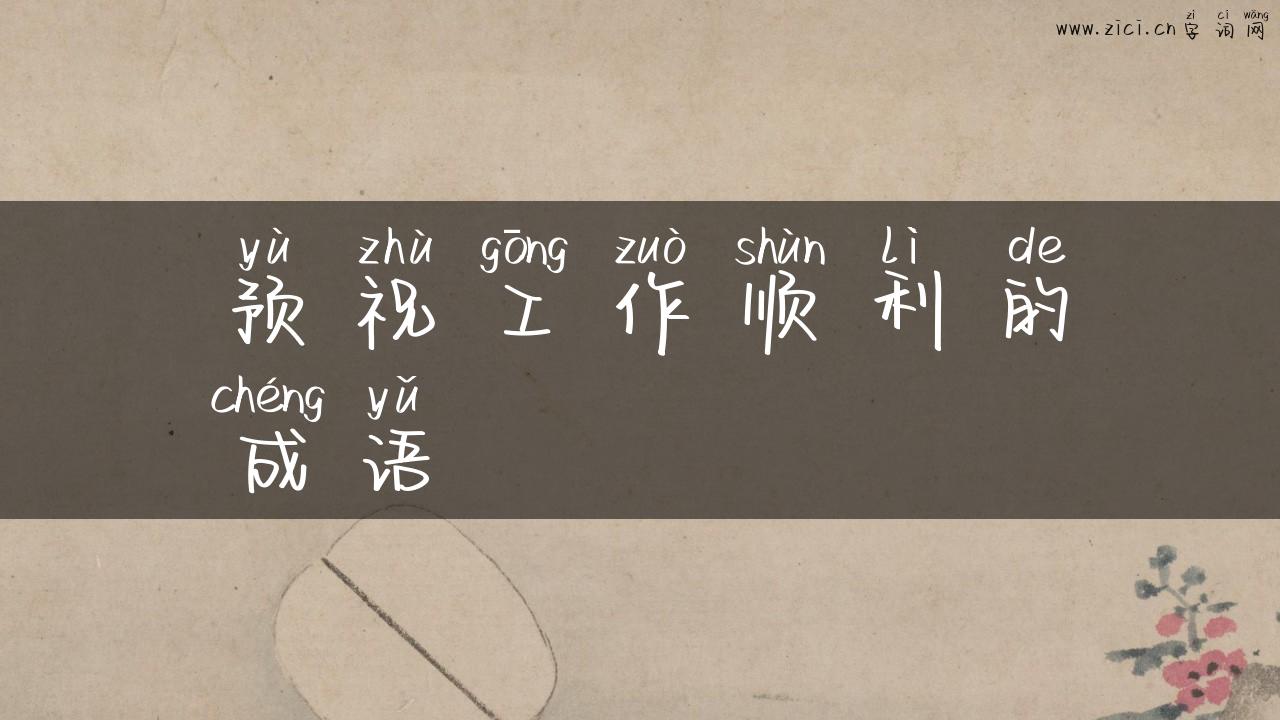 zì cí wǎng
www.zici.cn 字 词 网
yù zhù gōng zuò shùn lì de
预 祝 工 作 顺 利 的
chéng yǔ
成 语